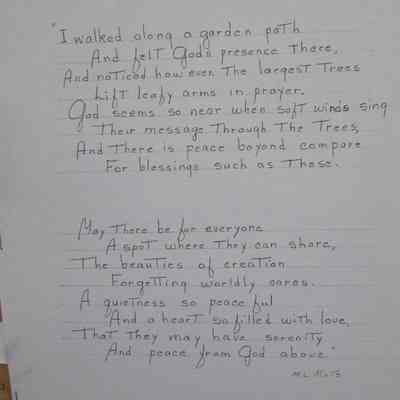 "I walked along a garden path
And felt God's presence there,
And noticed how even The largest Trees
Lift leafy arms in prayer.
God seems so near when soft winds sing
Their message Through The Trees,
And There is peace beyond compare
For blessings such as These.
May There be for everyone
A spot where They can share,
The beauties of creation
Forgetting worldly cares.
A quietness so peaceful
And a heart so filled with love,
That They may have serenity
And peace from God above."